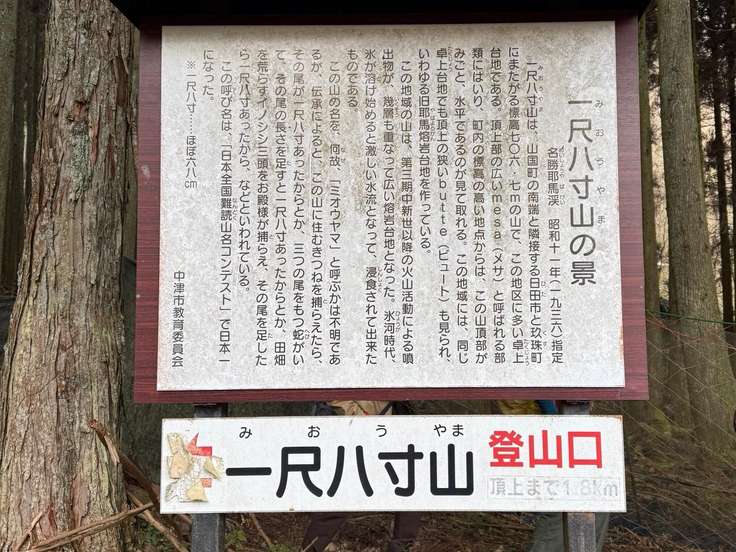 みおうやま
一尺八寸山の景
めいしょうやばけい
名勝耶馬渓　昭和十一年(一九三六)指定
一尺八寸山は、山国町の南端と隣接する日田市と玖珠町
にまたがる標高七〇六・七mの山で、この地区に多い卓上
台地である。頂上部の広いmesa(メサ)と呼ばれる部
類にはいり、町内の標高の高い地点からは、この山頂部が
みごと、水平であるのが見て取れる。この地域には、同じ
卓上台地でも頂上の狭いbutte(ビュート)も見られ、
いわゆる旧耶馬熔岩台地を作っている。
この地域の山は、第三期中新世以降の火山活動による噴
出物が、幾層も重なって広い熔岩台地となった。氷河時代、
氷が溶け始めると激しい水流となって、浸食されて出来た
ものである。
この山の名を、何故、「ミオウヤマ」と呼ぶかは不明であ
るが、伝承によると、この山に住むきつねを捕らえたら、
その尾が一尺八寸あったからとか、三つの尾をもつ蛇がい
て、その尾の長さを足すと一尺八寸あったからとか、田畑
を荒らすイノシシ三頭をお殿様が捕らえ、その尾を足した
ら一尺八寸あったから、などといわれている。
この呼び名は、「日本全国難読山名コンテスト」で日本一
になった。
※一尺八寸……ほぼ六八cm
中津市教育委員会
みおうやま
一尺八寸山 登山口
頂上まで1.8km